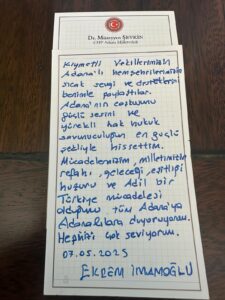 Dr. Müzeyyen ŞEVKİN
CHP Adana Milletvekili
Kıymetli Vekillerimizle
Adana'lı hemşehrilerimizin
sıcak sevgi ve desteklerini
benimle paylaştılar.
Adana'nın coşkusunu
güçlü sesini ve
yürekli hak hukuk
savunuculuğun en güçlü
şekliyle hissettim.
Mücadelemizin, milletimizin
refahı, geleceği, eşitliği
huzuru ve Adil bir
Türkiye mücadelesi
olduğunu tüm Adana'ya
Adanalılara duyuruyorum.
Hepinizi çok seviyorum.
07.05.2025
EKREM İMAMOĞLU